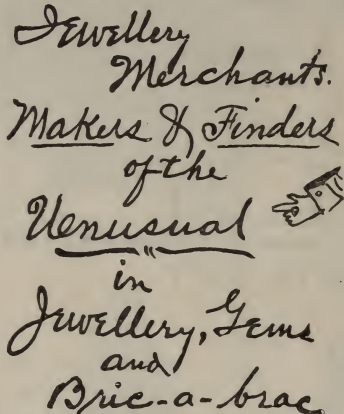 Jewellery
Merchants.
Makers & Finders
of the
Unusual
in
Jewellery, Gems
and
Bric-a-brac